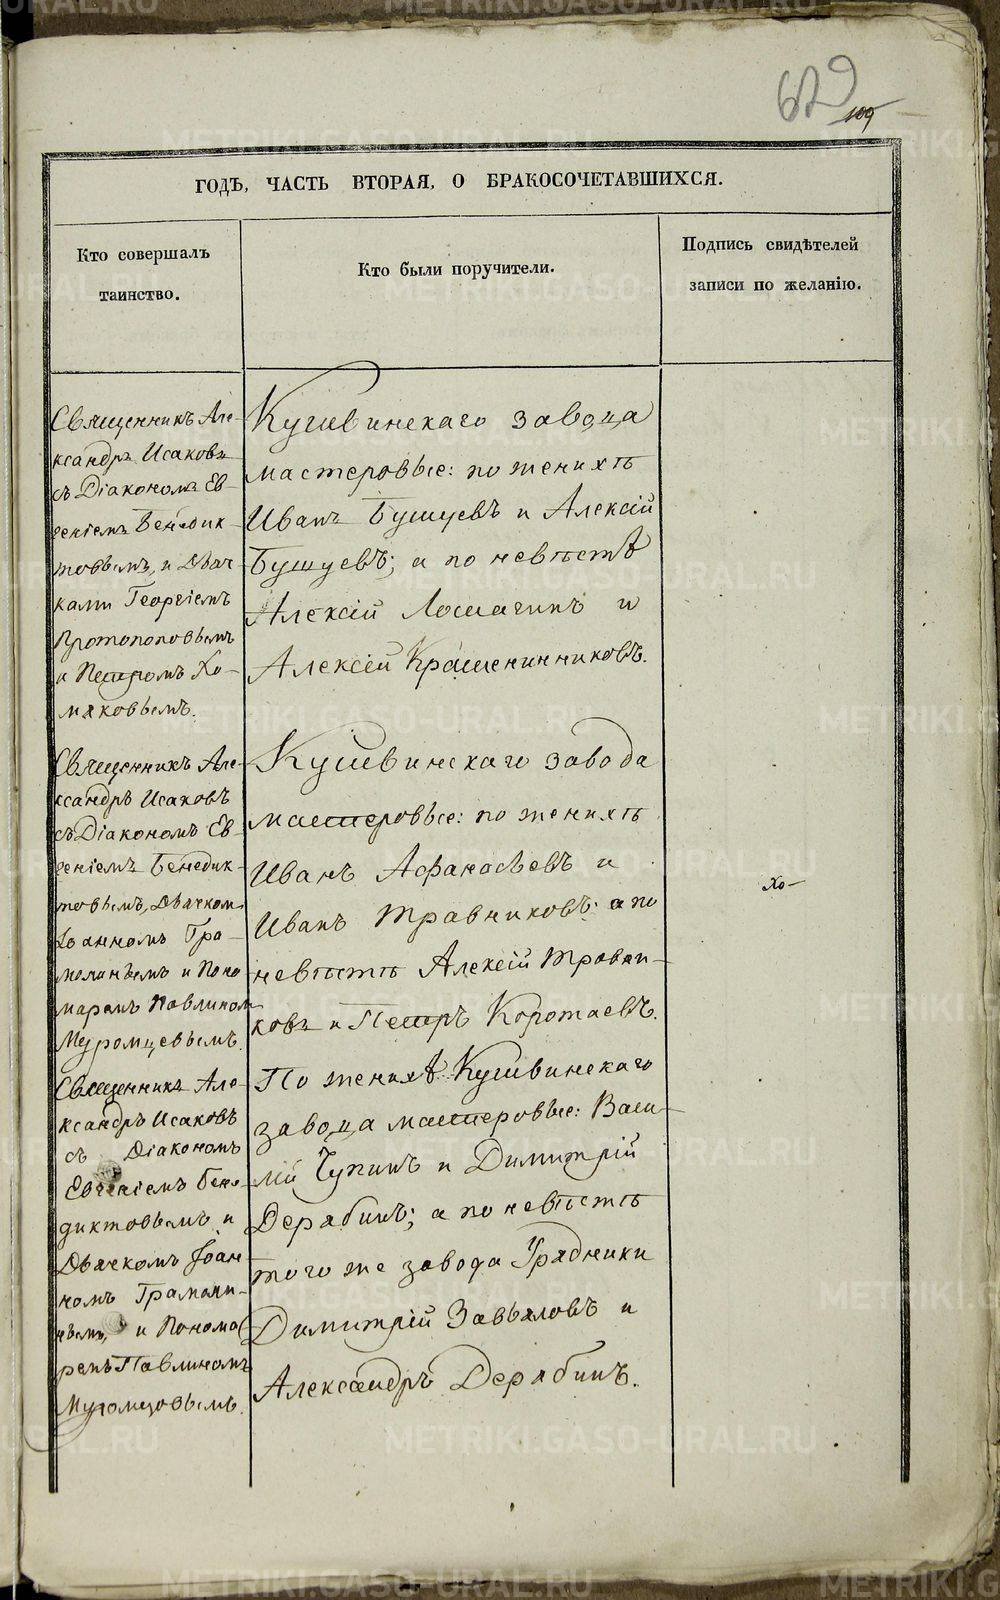 629
109
ГОДЪ, ЧАСТЬ ВТОРАЯ, О БРАКОСОЧЕТАВШИХСЯ.
Кто совершалъ
таинство.
Кто были поручители.
Подпись свидѣтелей
записи по желанію.
Священникъ Але-
ксандръ Исаковъ
съ Діакономъ Ев-
геніемъ Бенедик-
товымъ, и Дьяч
ками Георгіемъ
Протопоповымъ
и Петромъ Хо-
мяковымъ.
Кушвинскаго завода
мастеровые: по женихѣ
Иванъ Бушуевъ и Алексій
Бушуевъ; а по невѣстѣ
Алексій Лошагинъ и
Алексій Крашенинниковъ.
Священникъ Але-
ксандръ Исаковъ
съ Діакономъ Ев-
геніемъ Бенедик-
товымъ, Дьячком
Іоанномъ Гра-
молинымъ и Поно
маремъ Павлином
Муромцевымъ.
Кушвинскаго завода
мастеровые: по женихѣ
Иванъ Афанасьевъ и
Иванъ Травниковъ: а по
невѣстѣ Алексій Травни-
ковъ и Петръ Коротаевъ.
Хо-
Священникъ Але-
ксандръ Исаковъ
съ Діакономъ
Евгеніемъ Бене-
диктовымъ и
Дьячкомъ Іоан
номъ Грамоли-
нымъ, и Понома
ремъ Павлиномъ
Муромцовымъ.
По женихѣ Кушвинскаго
завода мастеровые: Васи-
лій Чупинъ и Димитрій
Дерябинъ; а по невѣстѣ
того же завода Урядники
Димитрій Завьяловъ и
Александръ Дерябинъ.
METRIKI.GASO-URAL.RU